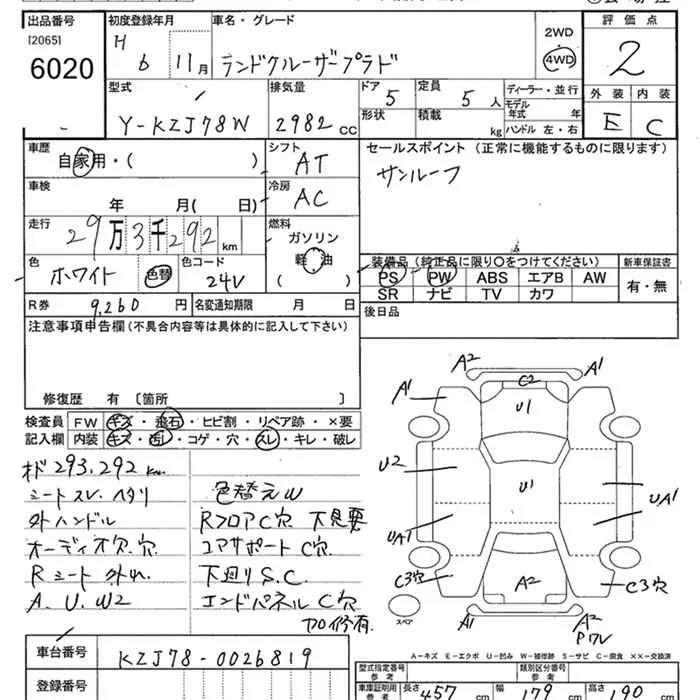 出品番号
[2065]
6020
初度登録年月
H 6 11月
車名・グレード
ランドクルーザープラド
2WD
・
4WD
評価点
2
外装 内装
E C
型式
Y-KZJ78W
排気量
2982 CC
ドア
5
形状
定員
5 人
積載
kg
ディーラー・並行
モデル
年式 年
ハンドル 左・右
車歴
自家用・( )
シフト
AT
車検
年 月( 日)
冷房
AC
走行
29万3千292 km
燃料
ガソリン
軽油
( )
色
ホワイト
色替
色コード
24V
R券
9,260 円
名変通知期限
月 日
セールスポイント(正常に機能するものに限ります)
サンルーフ
装備品(純正品に限り○をつけてください)
PS PW ABS エアB AW
SR ナビ TV カワ
新車保証書
有・無
後日品
注意事項申告欄(不具合内容等は具体的に記入して下さい)
修復歴 有〔箇所 〕
検査員
記入欄
FW キズ・飛石・ヒビ割・リペア跡・×要
内装 キズ・汚レ・コゲ・穴・スレ・キレ・破レ
オド 293,292 km
シートスレ ヘタリ
外ハンドル
オーディオ欠.穴
Rシート外れ
A.U.W2
色替えW
RフロアC穴 下見要
コアサポートC穴
下廻りS.C.
エンドパネルC穴
加修有
A2
A1
C2
A1
U1
A1
U2
U1
UA1
UA1
UA1
C3穴
A2
C3穴
スペア
A1
A2
Pワレ
A－キズ E－エクボ U－凹み W－補修跡 S－サビ C－腐食 XX－交換済
車台番号
KZJ78-0026819
登録番号
型式指定番号
参考
類別区分番号
参考
車庫証明用
参考
長さ 457 cm
幅 179 cm
高さ 190 cm